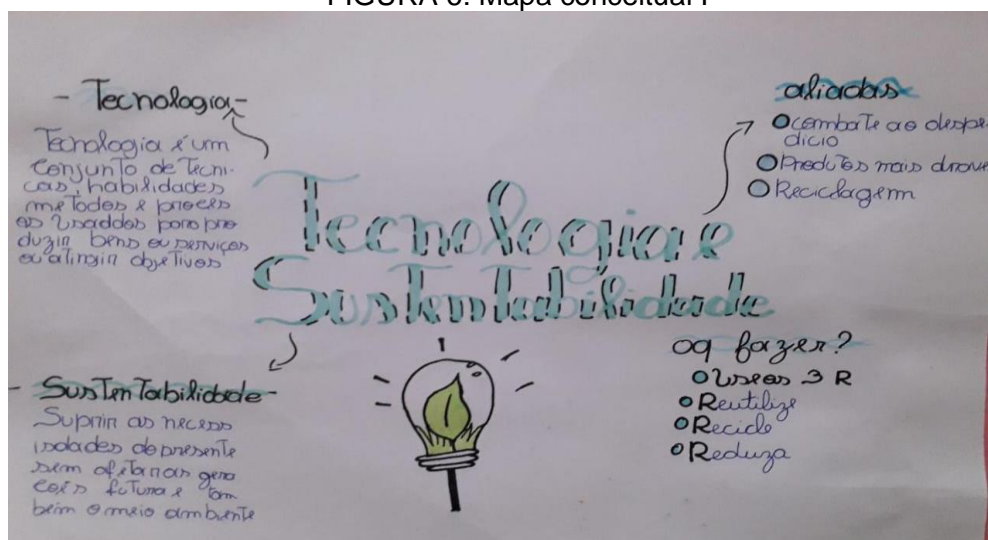 FIGURA 6: Mapa conceitual I
- Tecnologia -
Tecnologia é um
conjunto de tecni-
cas, habilidades
metodos e proces
os usaddos para pro
duzir bens ou serviços
ou atingir objetivos
aliadas
combate ao despe-
dicio
Produtos mais
Reciclagem
Tecnologia e
Sustentabilidade
- Sustentabilidade -
Suprir as necess
isdades do presente
sem afetar as gera
futura e tam
beim o meio ambiente
oq fazer?
Use os 3 R
Reutilize
Recicle
Reduza